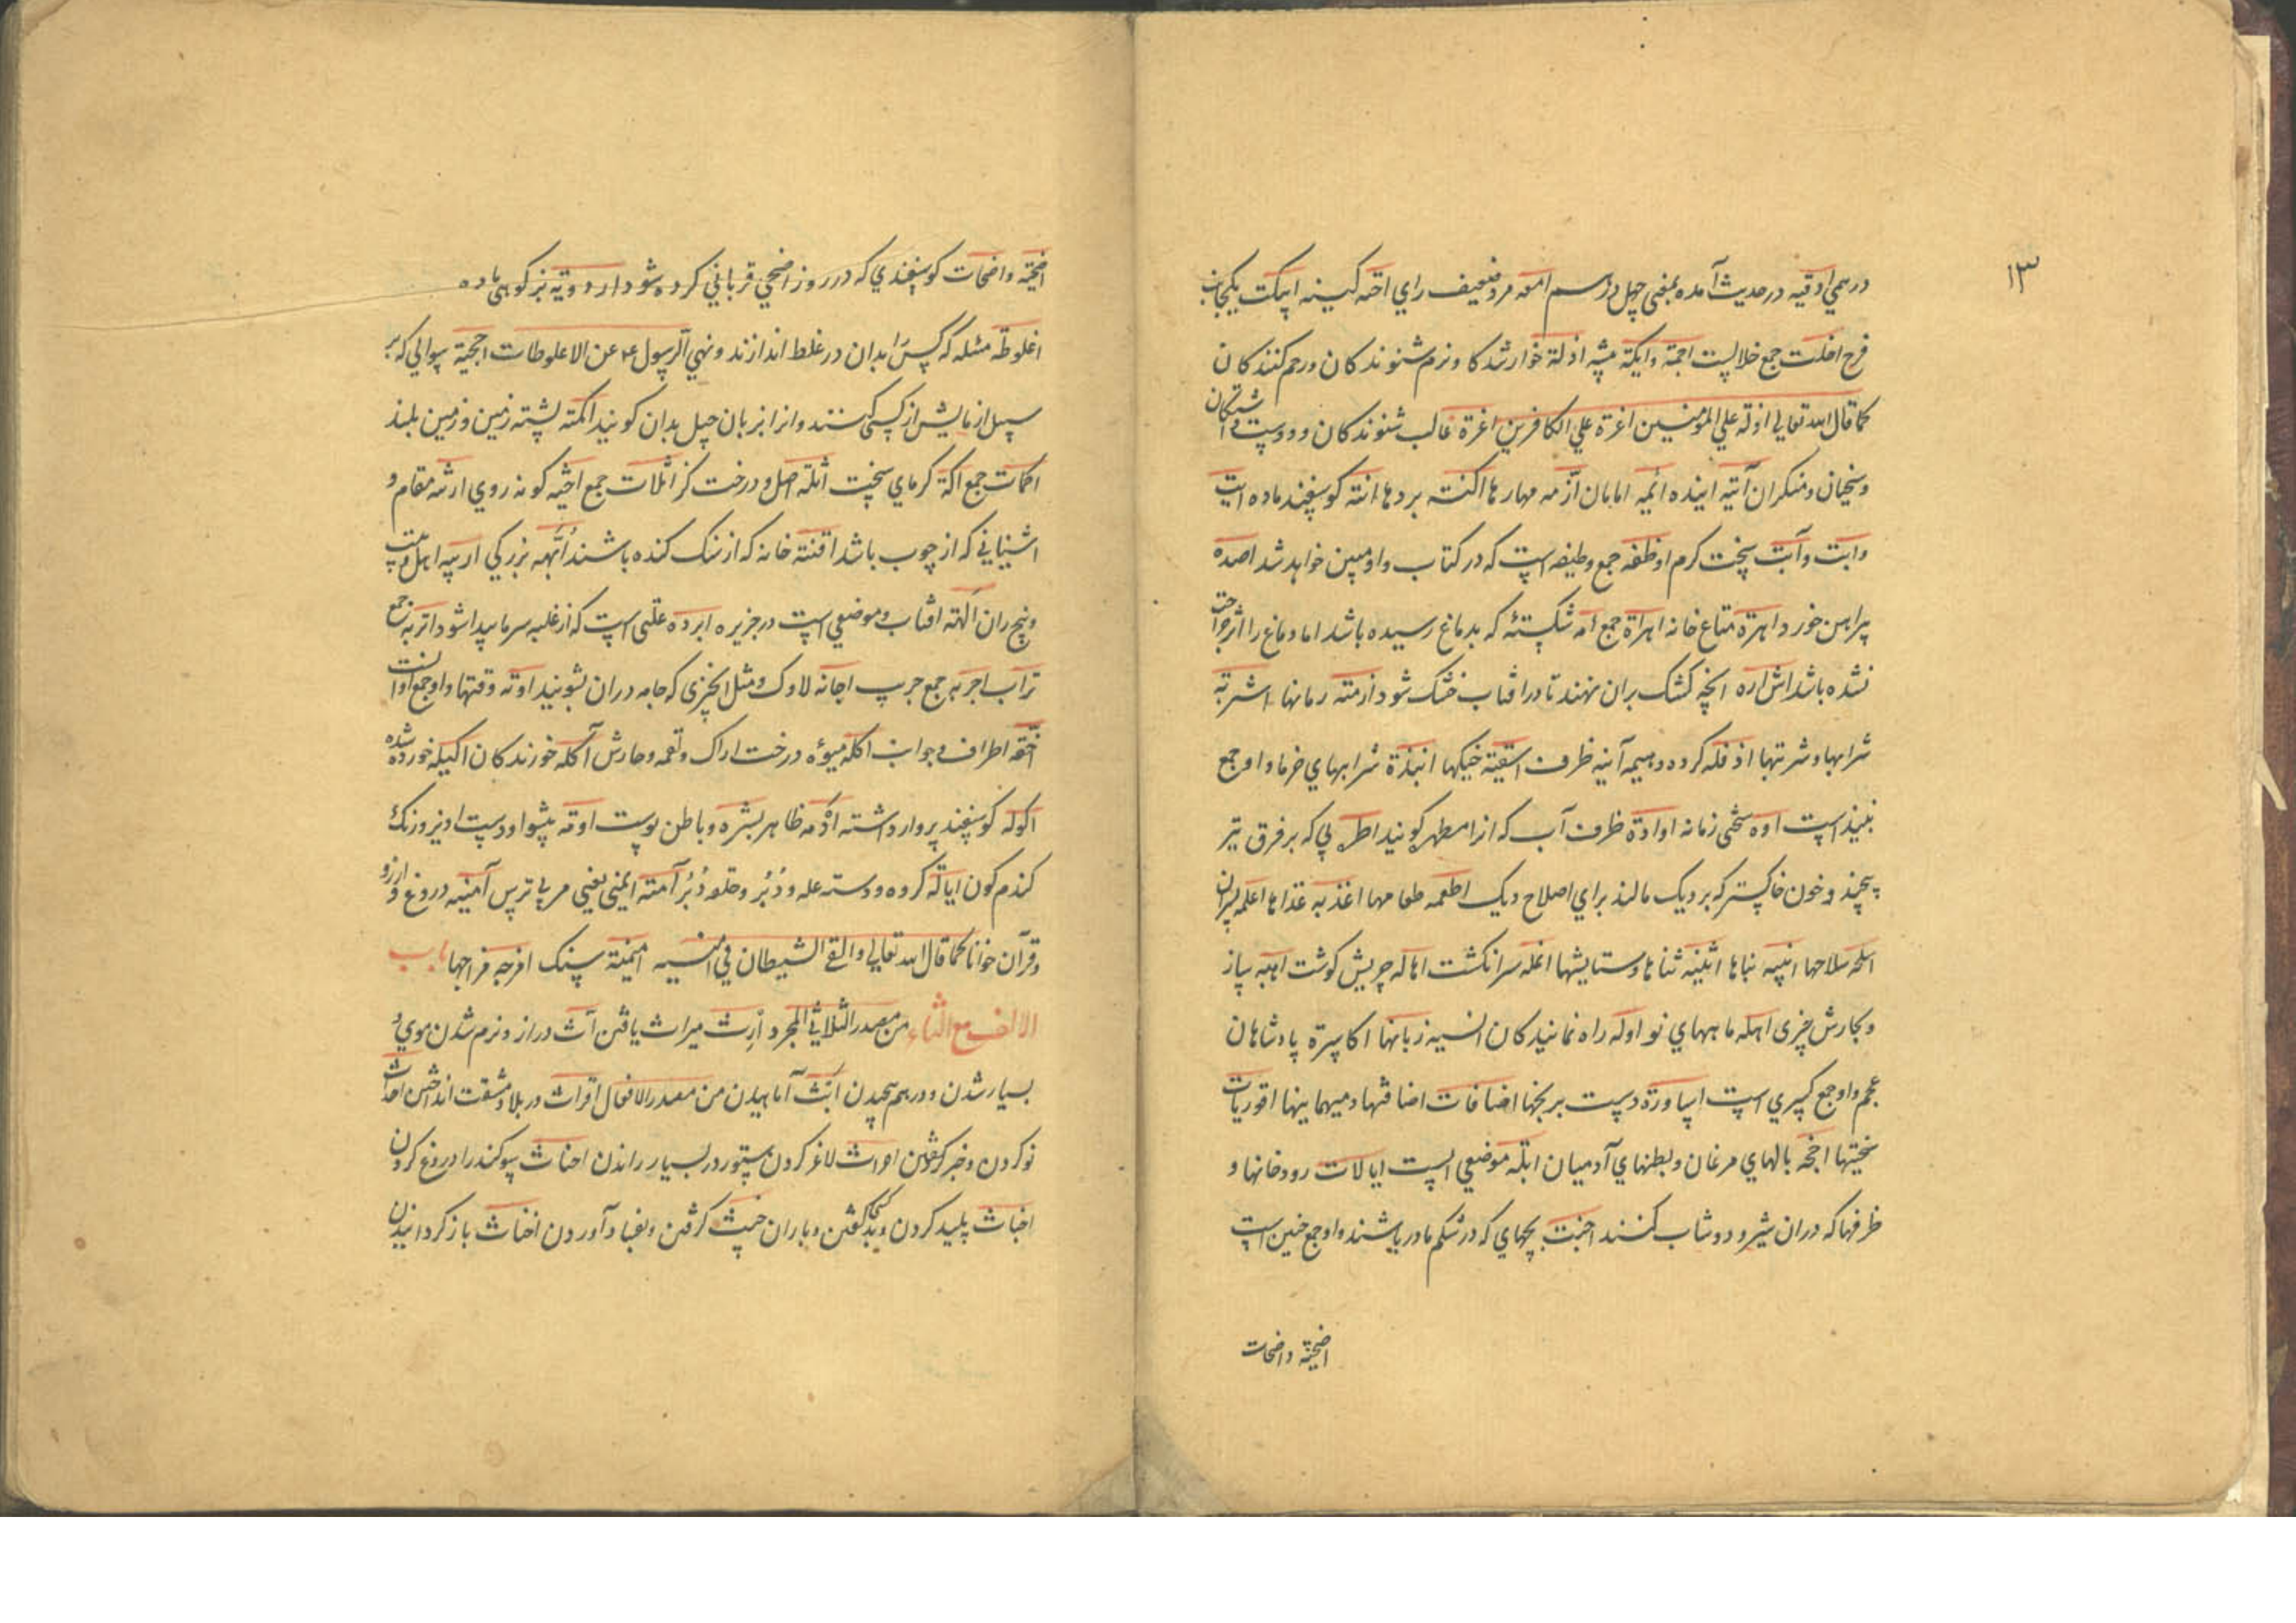 ۱۳
درهمي اوقيه در حديث آمده بمعنى چهل درم امعه مرد ضعيف راي احنه كينه ايكت يكجانب
فرج اخلت جمع خلالست اجمة وايكة بيشه اذلة خوار شدكا و نرم شنوندكان ورحم كنندكان
كما قال الله تعالي اذلة علي المؤمنين اعزة علي الكافرين اعزة غالب شنوندكان ودوست
وسخيان ومنكران آتيه آينده ائمه امامان ازمه مهارها اكنه بردها انثه كوسفند ماده ابت
وابت وآبت سخت كرم اوظفه جمع وظيفه است كه در كتاب واو مبين خواهد شد اصده
پراهن خورد اهرة متاع خانه اهراة جمع امه شكستۀ كه بدماغ رسيده باشد اما دماغ را اثر جراحت
نشده باشد اشراره انچه كشك بران نهند تا در افتاب خشك شود ازمنه زمانها اشربة
شرابها وشربتها اذفله كروه وهيمه آنيه ظرف اسقية خيكها انبذة شرابهاي خرما واو جمع
نبيذ است اوه سختى زمانه اوادة ظرف آب كه انرا مطهر كويند اطره پي كه بر فرق تير
پيچند وخون خاكستر كه بر ديك مالند براي اصلاح ديك اطعمه طعامها اغذيه غذاها اغلمه پسران
اسلحه سلاحها ابنيه بناها اثنيه ثناها وستايشها انمله سرانكشت اهاله چربش كوشت اهبه ساز
وبكارش چيزى اهله ماههاي نو اوله راه نمايندكان السنه زبانها اكاسرة پادشاهان
عجم واو جمع كسري است اساورة دست برنجها اضافات اضافتها وميهمانيها
سختيها اجنحه بالهاي مرغان وبطنهاي آدميان ابله موضعي است ايالات رودخانها و
ظرفها كه دران شير ودوشاب كنند اجنة بچهاي كه در شكم مادر باشند واو جمع جنين است
اضحية واضحات
اضحية واضحات كوسفندي كه در روز اضحي قرباني كرده شود اروية بز كوهي ماده
اغلوطة مسئله كه كس را بدان در غلط اندازند ونهي الرسول ع م عن الاغلوطات احجية سوالي كه بر
سبيل ازمايش از كسى كنند وانرا بزبان چيل بدان كويند اكمه پشته زمين وزمين بلند
اكمات جمع اكة كرماي سخت اثلة اصل ودرخت كز اثلات جمع احثيه كونه روي ارثه مقام و
اشياني كه از چوب باشد اقنة خانه كه از سنك كنده باشند ابهه بزركي
وبيخ ران الهة افتاب وموضعي است در جزيره ابرده علتى است كه از غلبه سرما پيدا شود اتربه جمع
تراب اجربه جمع جرب اجانه لاوك ومثل انچيزى كه جامه دران بشويند اونه وقتها واو جمع اوانست
اطراف وجوانب اكله ميوۀ درخت اراك ولقمه وخارش آكله خورندكان اكيله خورده شده
اكوله كوسفند پروار داشته ادمه ظاهر بشره وباطن پوست اومه پيشوا ودوست ونيز رنك
كندم كون اياله كروه ودسته علو ودبر وحلقه دبر آمنه ايمنى يعني مر بي ترس امنيه دروغ وارزو
وقرآن خواندن كما قال الله تعالي والقي الشيطان في امنيته امنيته سنك افرجه فراجها باب
الالف مع الثاء من مصدر الثلاثي المجرد ارث ميراث يافتن اث دراز ونرم شدن موي و
بسيار شدن ودرهم پيچيدن انث آماهيدن من مصدر الافعال اقراث در بلا ومشقت انداختن احداث
نو كردن وخبر كفتن احراث لاغر كردن ستور در بسيار راندن احناث سوكند را دروغ كردن
اخباث پليد كردن وبد كفتن وباران خبيث كرفتن وبفساد آوردن اخناث باز كردانيدن